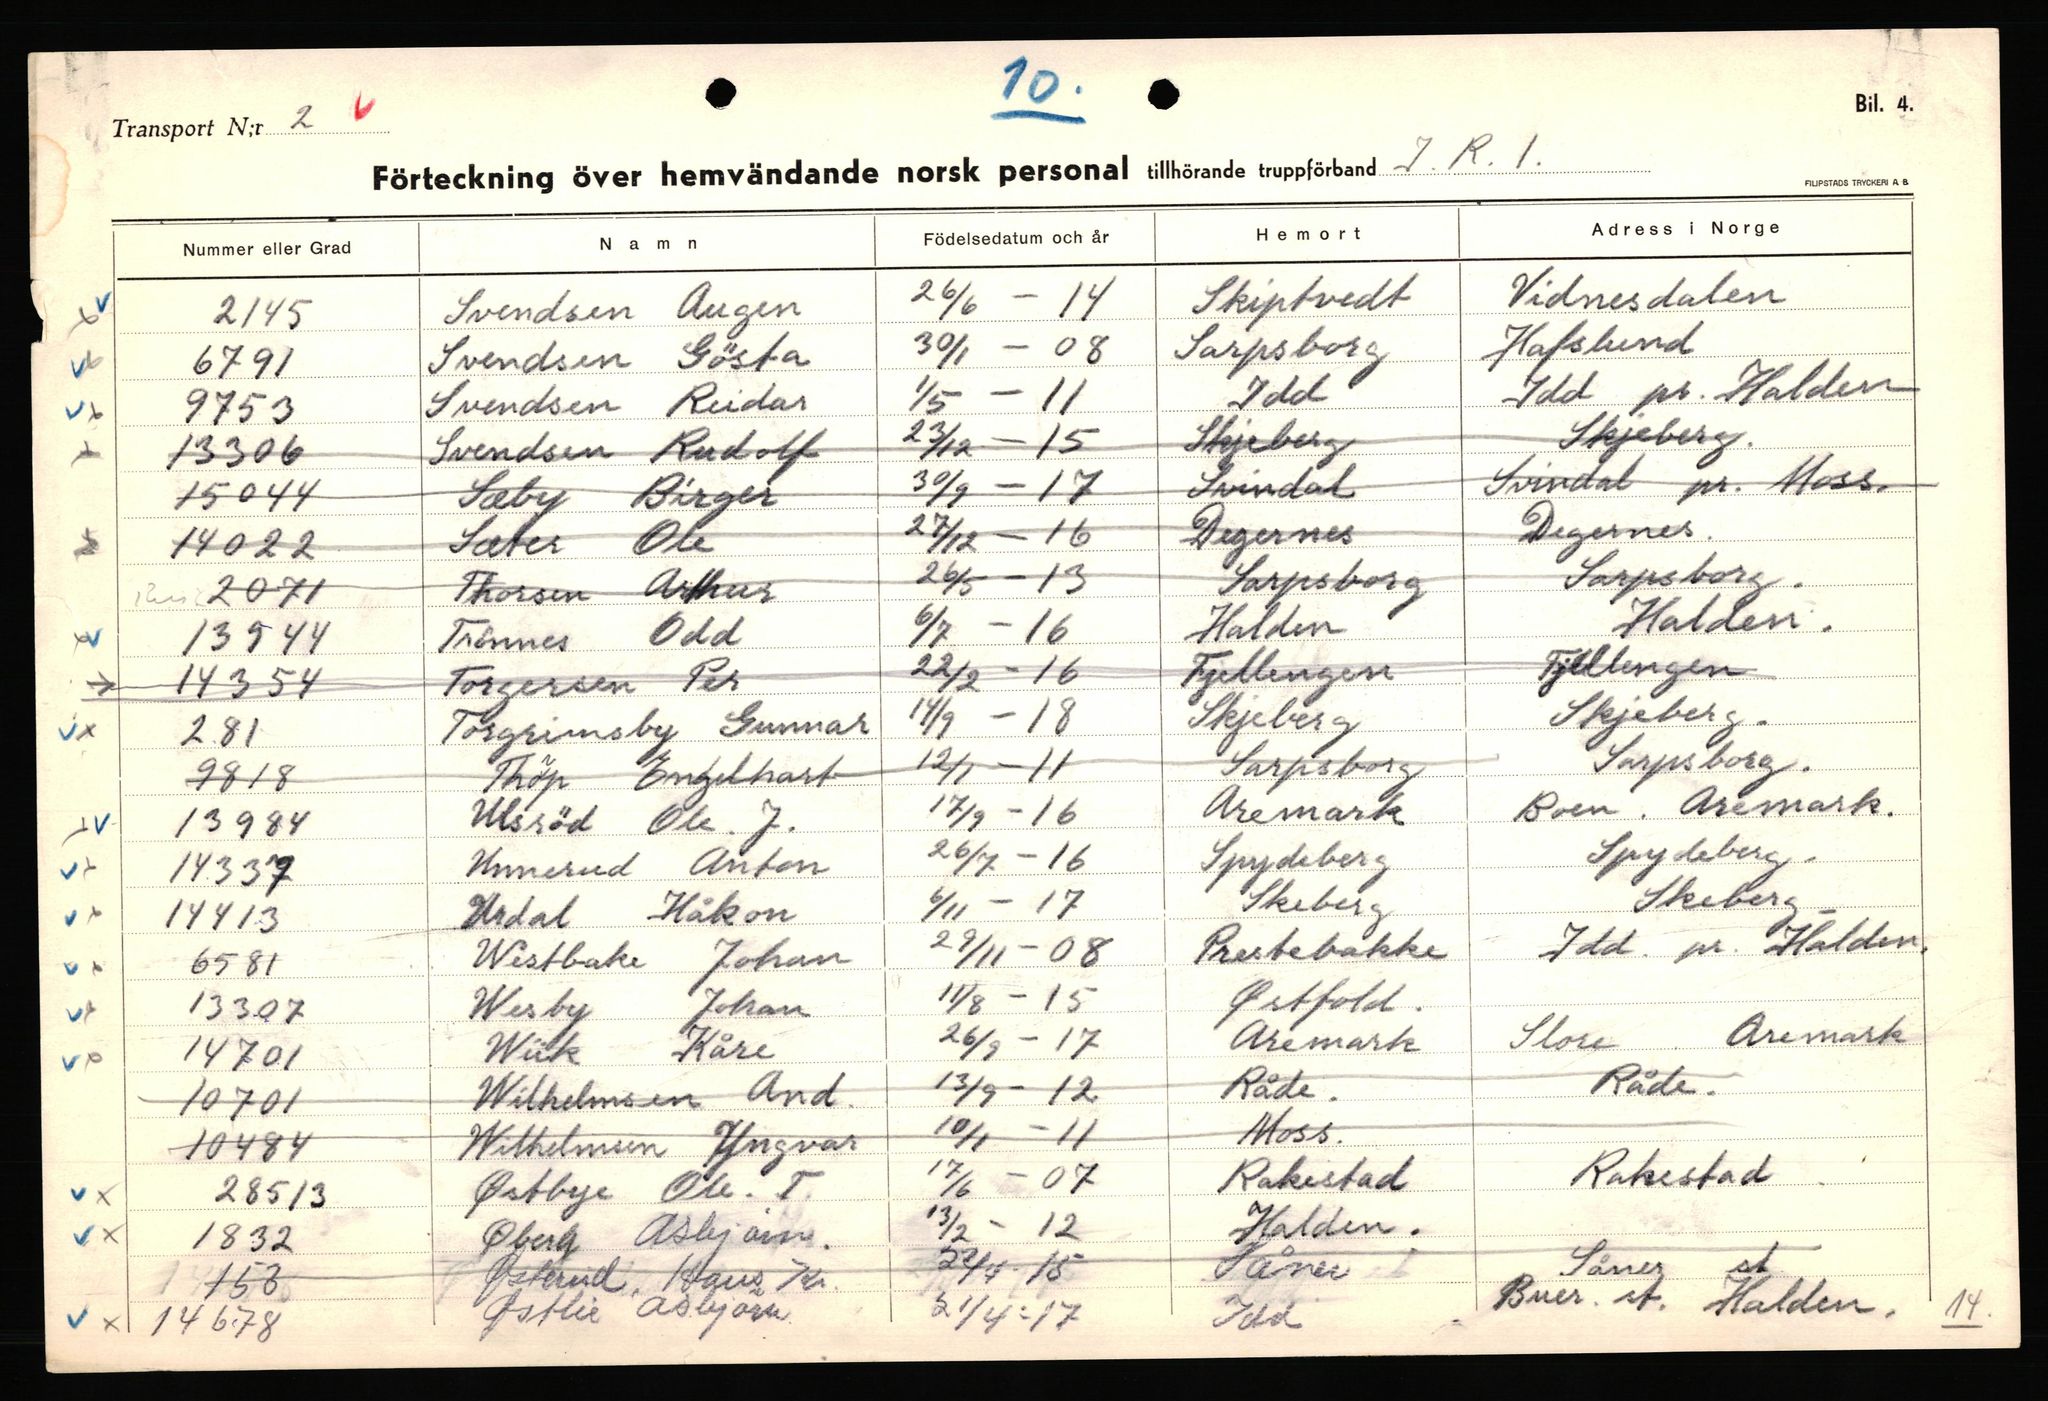 10.
Bil. 4.
Transport N;r 2 v
Förteckning över hemvändande norsk personal tillhörande truppförband I. R. 1.
FILIPSTADS TRYCKERI A B
Nummer eller Grad Namn Födelsedatum och år Hemort Adress i Norge
2145 Svendsen Augen 26/6 - 14 Skiptvedt Vidnesdalen
6791 Svendsen Gösta 30/1 - 08 Sarpsborg Hafslund
9753 Svendsen Reidar 1/5 - 11 Idd Idd pr. Halden
13306 Svendsen Rudolf 23/12 - 15 Skjeberg Skjeberg.
15044 Sæby Birger 30/9 - 17 Svindal Svindal pr. Moss.
14022 Sæter Ole 27/12 - 16 Degernes Degernes.
2071 Thorsen Arthur 26/5 - 13 Sarpsborg Sarpsborg.
13944 Trönnes Odd 6/7 - 16 Halden Halden.
14354 Torgersen Per 22/2 - 16 Fjellengen Fjellengen
281 Torgrimsby Gunnar 14/9 - 18 Skjeberg Skjeberg.
9818 Thöp Engelhart 12/1 - 11 Sarpsborg Sarpsborg.
13984 Ulsröd Ole. J. 17/9 - 16 Aremark Boen. Aremark.
14337 Unnerud Anton 26/7 - 16 Spydeberg Spydeberg.
14413 Urdal Håkon 6/11 - 17 Skeberg Skeberg
6581 Westbake Johan 29/11 - 08 Prestebakke Idd. pr. Halden.
13307 Wesby Johan 11/8 - 15 Østfold.
14701 Wiik Kåre 26/9 - 17 Aremark Slore Aremark
10701 Wilhelmsen And. 13/9 - 12 Råde. Råde.
10484 Wilhelmsen Yngvar 10/1 - 11 Moss.
28513 Østbye Ole. T. 17/6 - 07 Rakestad Rakestad
1832 Øberg Asbjörn. 13/2 - 12 Halden.
153 Østerud, Hans Kr. 22/4 - 15 Såner Såner st
14678 Østlie Asbjörn 21/4 - 17 Idd Buer. st. Halden.
14.